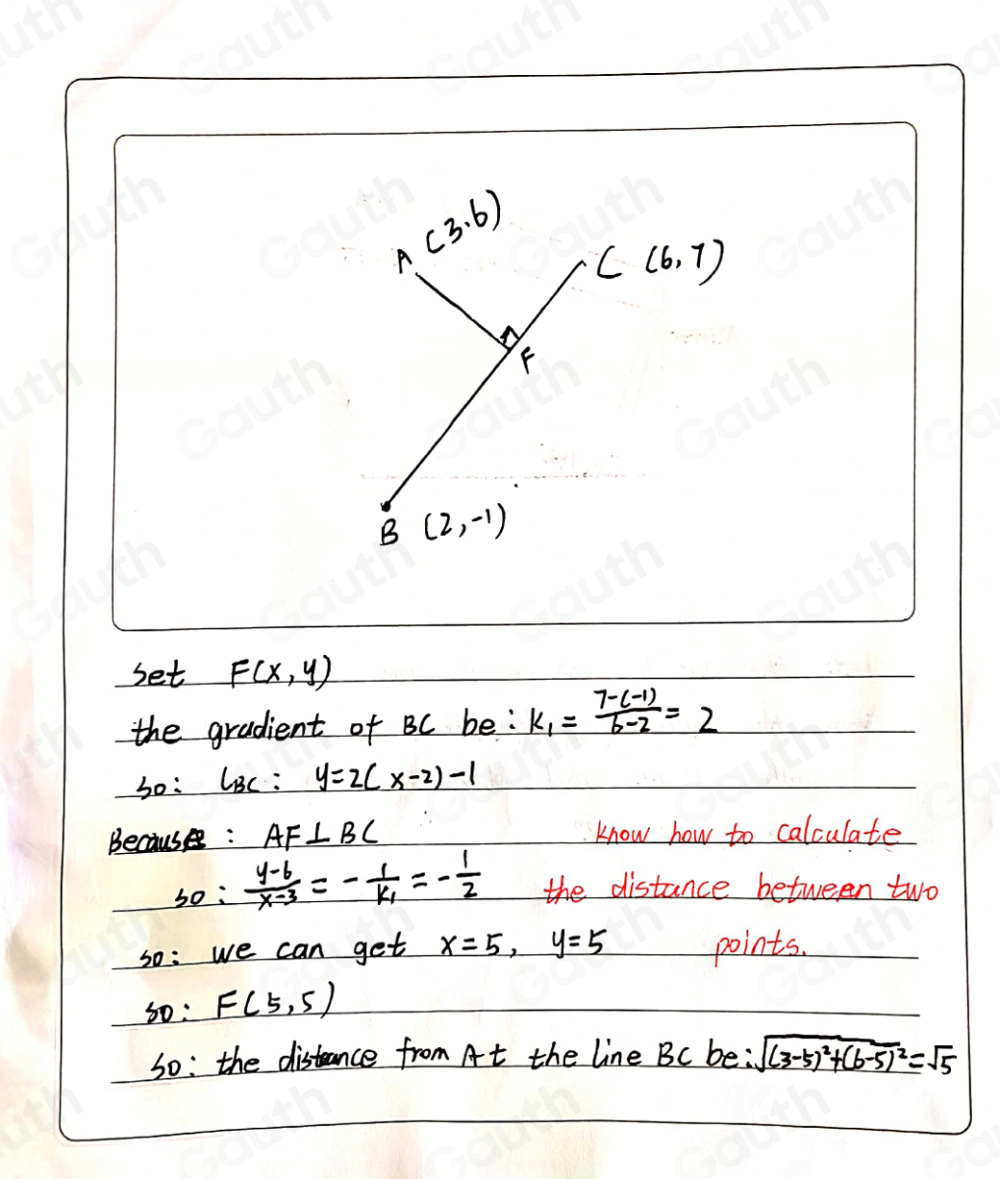 A (3.6)
C (6,7)
F
B (2,-1)
Set F(x,y)
the gradient of BC be: K₁ = 7-(-1)/6-2 = 2
so: LBC: y=2(x-2)-1
Because: AF⊥BC
know how to calculate
so: y-6/x-3 = -1/K₁ = -1/2
the distance between two
so: we can get x=5, y=5
points.
so: F(5,5)
so: the distance from A t the line BC be: √(3-5)²+(6-5)² = √5
Gauth